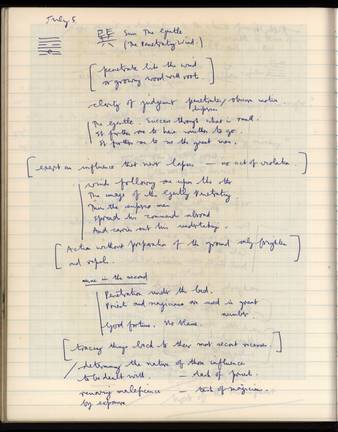 July 5
巽 Sun The Gentle
(The Penetrating Wind.)
penetrate like the wind
or growing wood with roots
clarity of judgment penetrates obscure motives
The gentle. Success through what is small.
It furthers one to have somewhere to go.
It furthers one to see the great man.
exert an influence that never lapses – no act of violation.
winds following one upon the other
The image of the Gently Penetrating
Thus the superior man
spreads his commands abroad
And carries out his undertakings.
Action without preparation of the ground only frightens
and repels.
nine in the second
Penetration under the bed.
Priests and magicians are used in great
number.
Good fortune. No blame.
tracing things back to their most secret recesses
determining the nature of those influences
to be dealt with – task of priest.
removing maleficence – task of magician.
by exposure